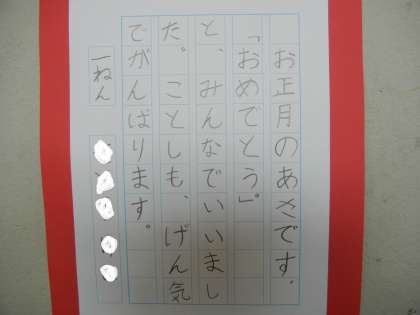 お正月のあさです。
「おめでとう」。
と、みんなでいいまし
た。ことしも、げん気
でがんばります。
一ねん